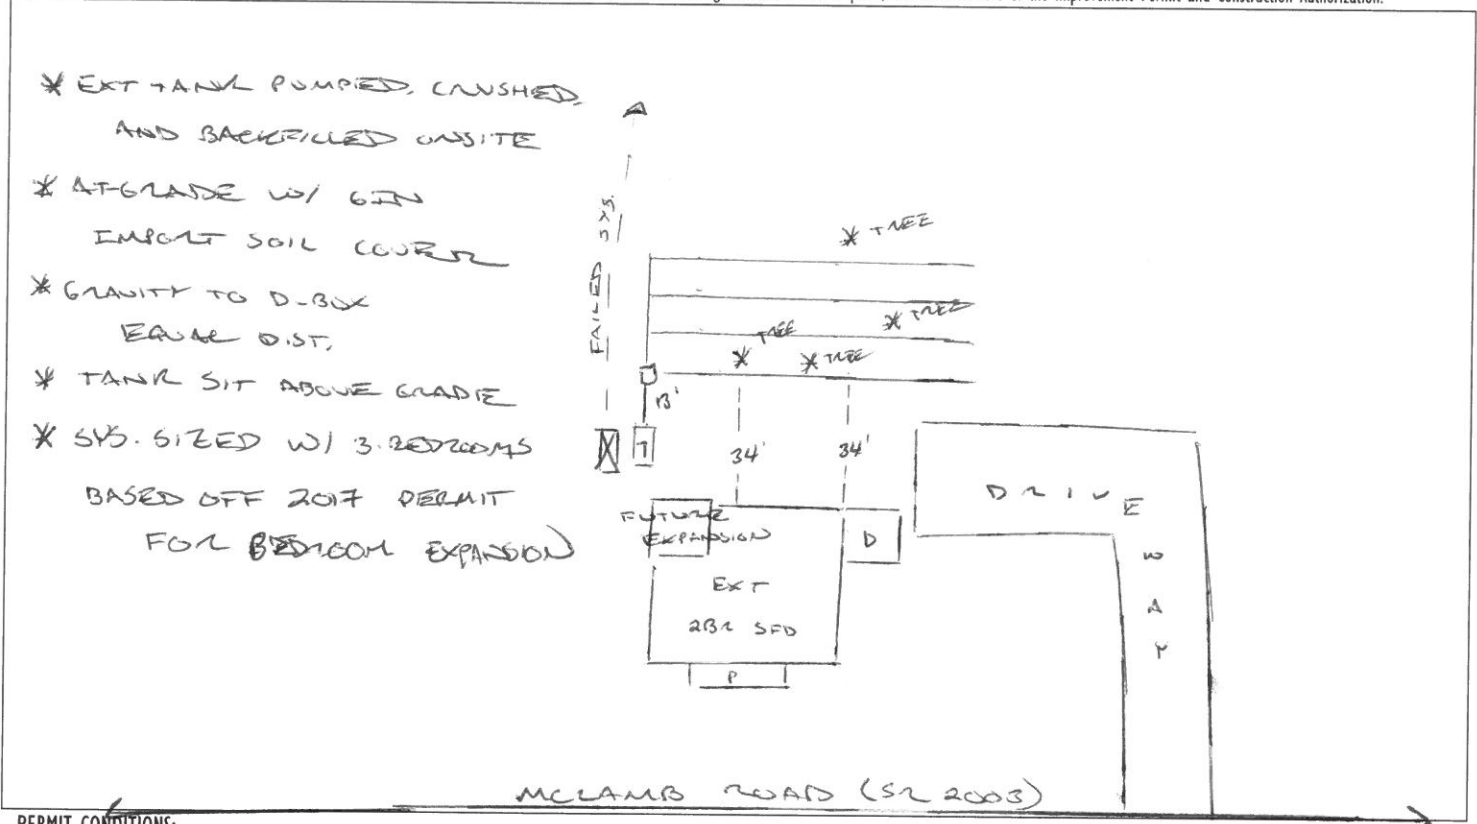 Improvement Permit and Construction Authorization.
* EXT TANK PUMPED, CRUSHED,
AND BACKFILLED ONSITE
* AT-GRADE W/ 6IN
IMPORT SOIL COVER
* GRAVITY TO D-BOX
EQUAL DIST.
* TANK SIT ABOVE GRADE
* SYS. SIZED W/ 3-BEDROOMS
BASED OFF 2017 PERMIT
FOR BEDROOM EXPANSION
FAILED SYS.
* TREE
* TREE
* TREE
* TREE
13'
T
34'
34'
FUTURE
EXPANSION
D
EXT
2BR SFD
P
DRIVE
WAY
MCLAMB ROAD (SR 2003)
PERMIT CONDITIONS: